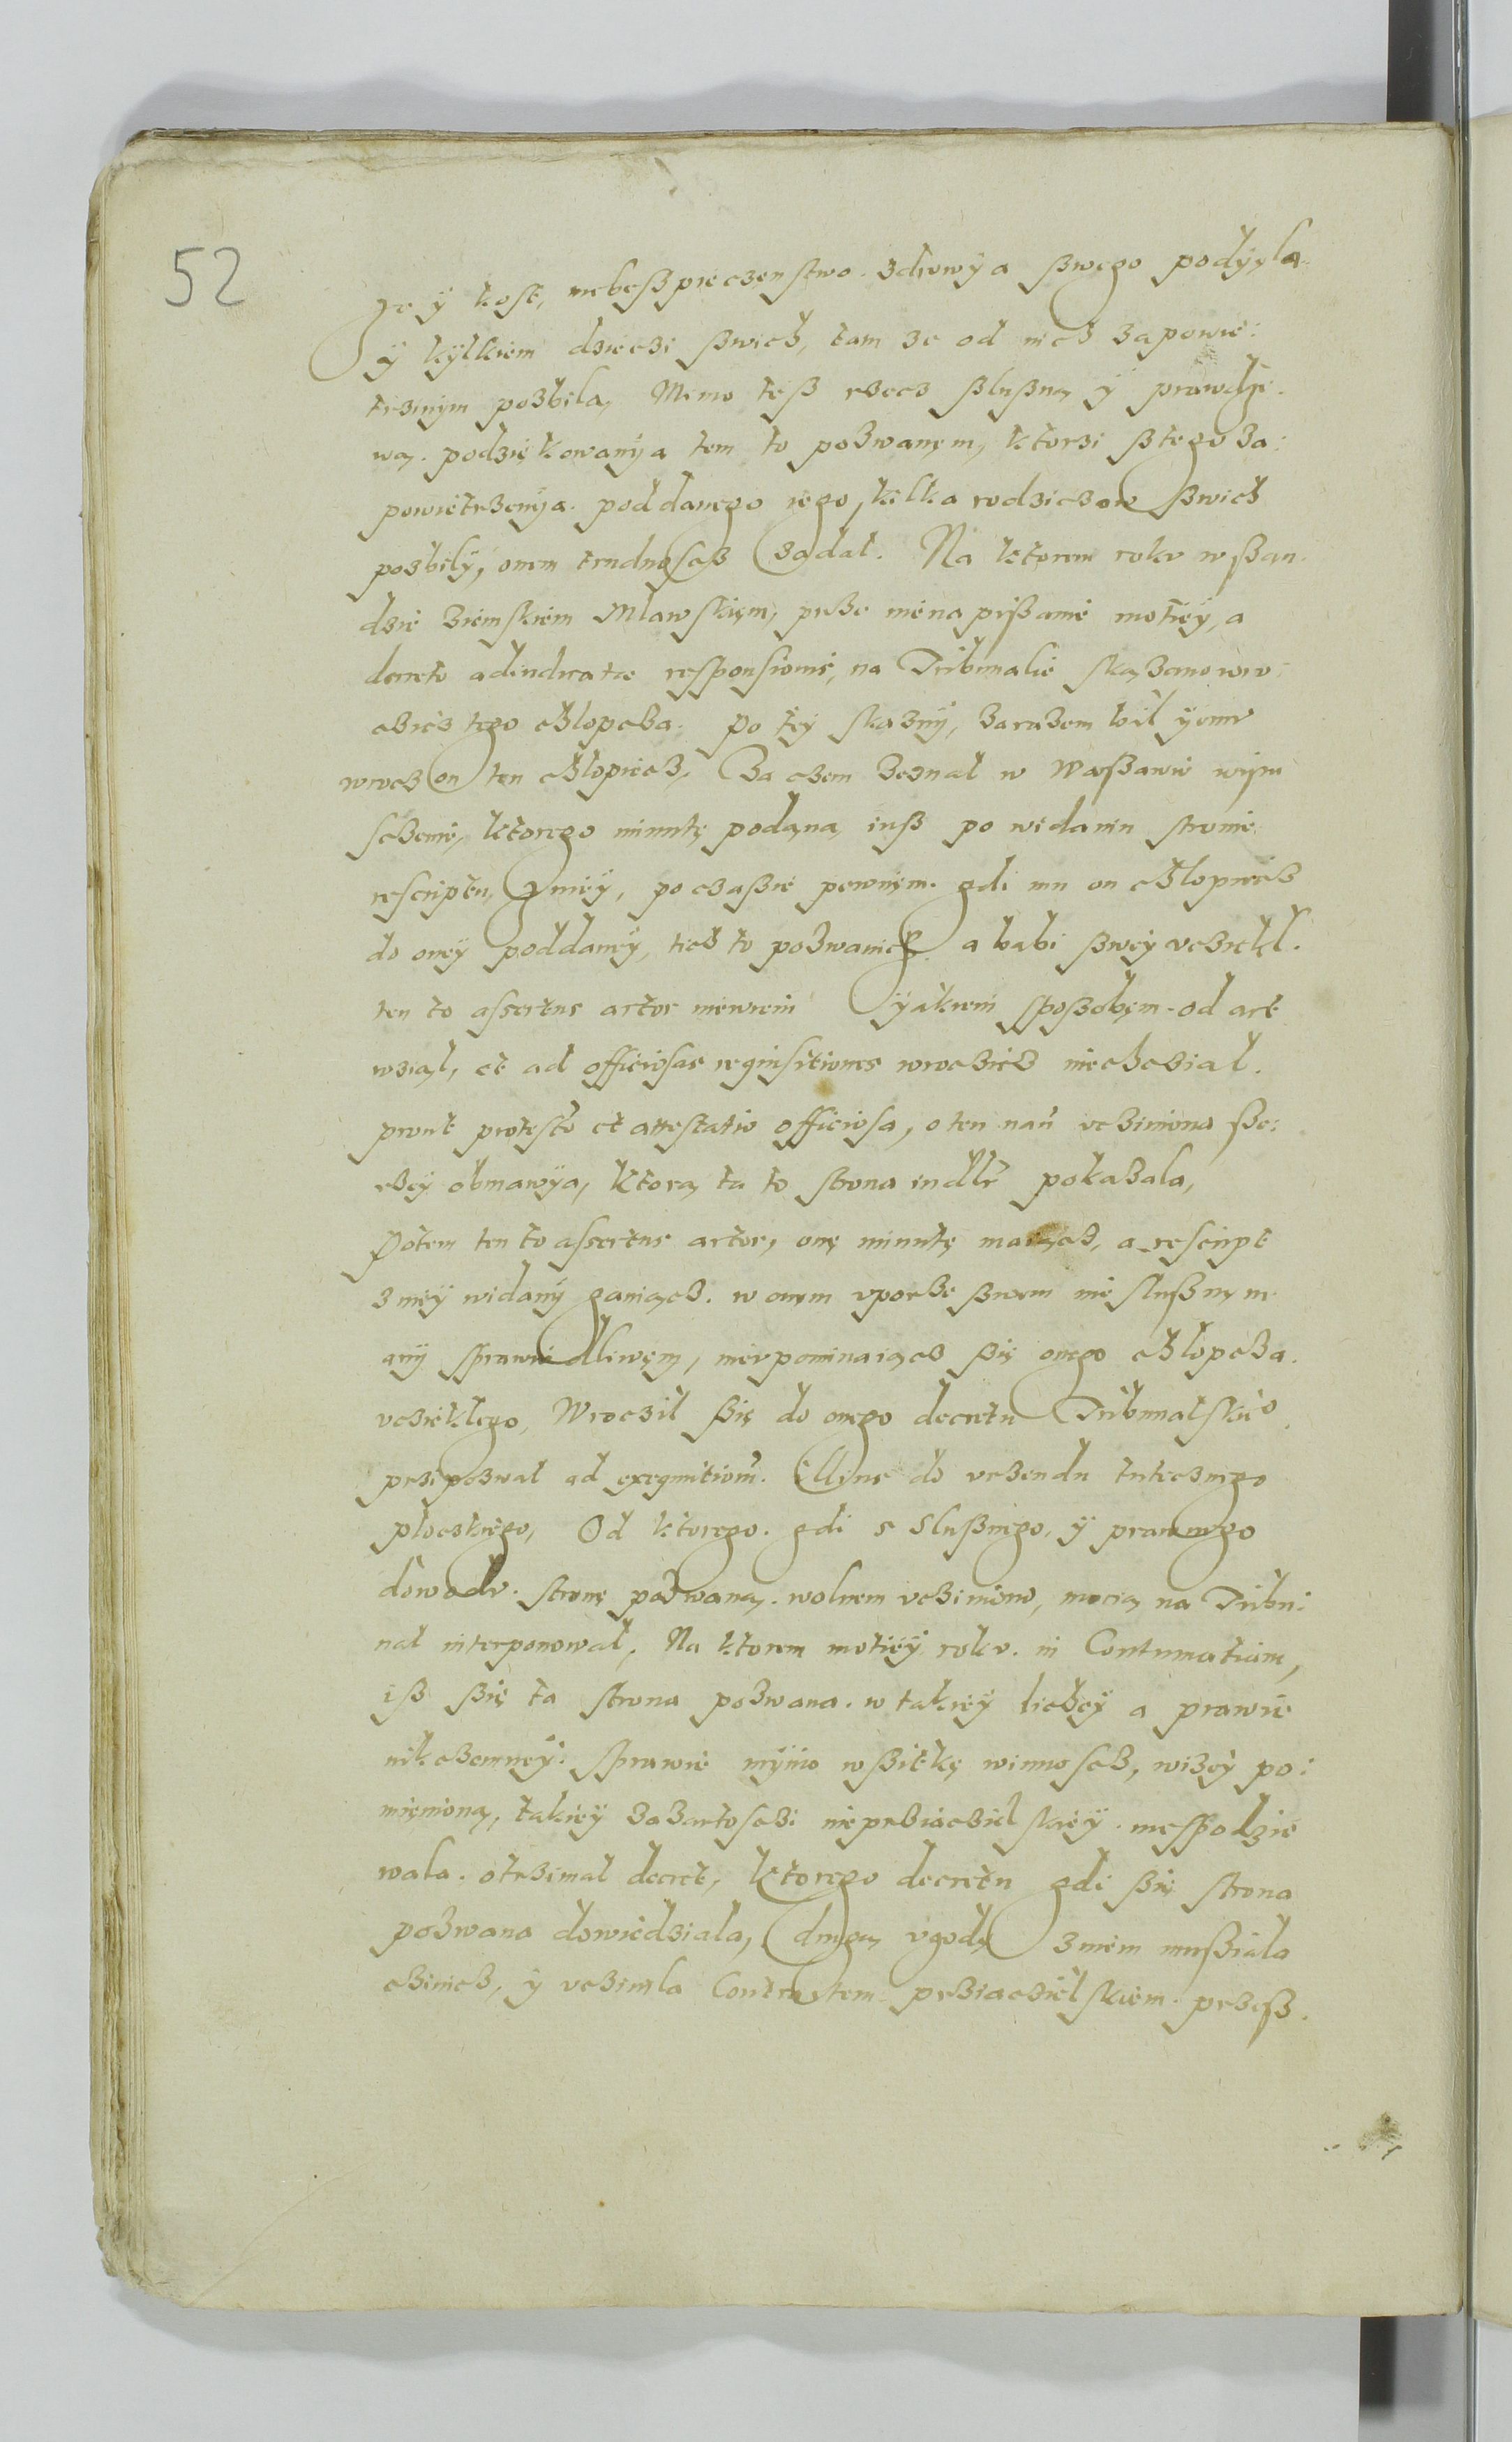 52
ze ÿ kost, niebeßpieczenstwo. zdrowÿa ßwego podÿyla
ÿ kÿlkiem dzieczi ßwich, tam ze od nich zapowie:
trznym pozbila, Mimo teß rzecz ßlußną ÿ prawdzi-
wą. podziękowanÿa tem to pozwanęm, ktorzi ßtego za:
powietrzenÿa. poddanego iego, kilka rodziczow ßwich
pozbilÿ, onem trudnoscz zadał. Na ktorem roku w ßan
dzie ziemskiem Mlawskięm, prze mie na pißanie motiey, a
decreto adiudicatae responsionis, na Tribunalie skazano wro:
czicz tego chlopcza. Po tey skaznÿ, zarazem bil ÿemu
wroczon ten chlopiecz. Za czem zeznał w Warßawie wÿzn
sczenie, ktorego minutę podaną iuß po widaniu stronie
rescriptu, zmieÿ, po czaßie pewnęm. gdi mu on chlopiecz
do oneÿ poddaneÿ, tich to pozwanich a babi ßweÿ vciekł.
ten to assertus actor niewiem ÿakiem sposobęm. od act
wziął, et ad officiosas requisitiones wroczicz niechczial.
prout protestō et attestatio officiosa, o ten nań vcziniona ße:
rzeÿ obmawÿa, ktorą ta to strona pokazala,
Potem ten to assertus actor, onę minutę maiącz, a rescript
z nieÿ widanÿ ganiącz. w onęm vporze ßwem nie slußnęm
anÿ sprawiedliwęm, nievpominaiącz ßię onego chlopcza.
vcieklego, Wroczil ßię do onego decretu Tribunalskieo
przipozwał ad exequutionē. Illius do vrzendu tuteczniego
ploczkiego, Od ktorego. gdi s slußnego, ÿ prawnego
dowodu. stronę pozwaną. wolnem vczinieno, mocią na Tribu:
nał interponował, Na ktorem motieÿ roku. in Contumatiam,
iß ßię ta strona pozwana. w takieÿ licheÿ a prawie
nikczemneÿ. sprawie mÿmo wßitkę winnoscz, wizeÿ po:
mięnioną, takieÿ zazartosczi nieprziaczielskieÿ. niespodzie
wala. otrzimał decret, ktorego decretu gdi ßię strona
pozwana dowiedziala, drugą vgodę z niem mußiala
czinicz, ÿ vczinila Contractem prziaczielskiem. przeß.